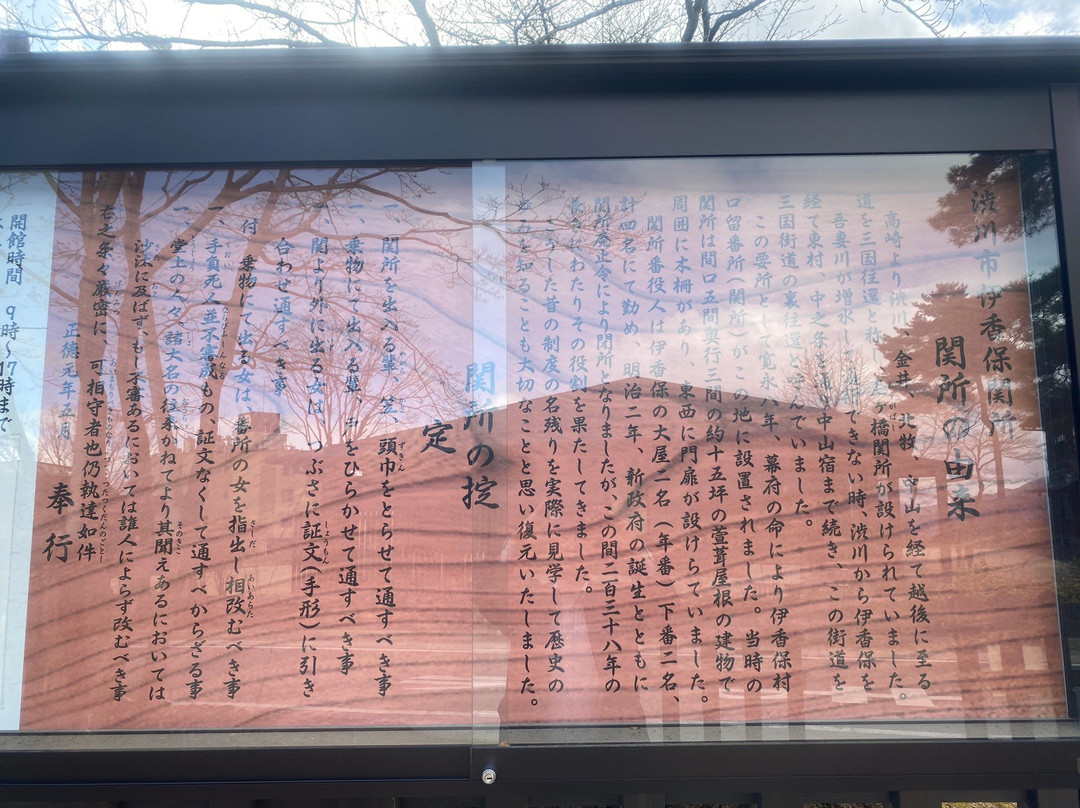 渋川市伊香保関所
関所の由来
高崎より渋川、金井、北牧、中山を経て越後に至る
道を三国往還と称し、橋関所が設けられていました。
吾妻川が増水してできない時、渋川から伊香保を
経て東村、中之条を中山宿まで続き、この街道を
三国街道の裏往還と呼んでいました。
この要所として寛永八年、幕府の命により伊香保村
口留番所(関所)がこの地に設置されました。当時の
関所は間口五間奥行三間の約十五坪の萱葺屋根の建物で
周囲に木柵があり、東西に門扉が設けらていました。
関所番役人は伊香保の大屋二名(年番)下番二名、
計四名にて勤め、明治二年、新政府の誕生とともに
関所廃止令により関所となりましたが、この間二百三十八年の
長きにわたりその役割を果たしてきました。
こうした昔の制度の名残りを実際に見学して歴史の
を知ることも大切なことと思い復元いたしました。
関所の掟
定
一、関所を出入る輩、笠、頭巾をとらせて通すべき事
一、乗物にて出入る輩、戸をひらかせて通すべき事
一、関より外に出る女は つぶさに証文(手形)に引き
合わせ通すべき事
付 乗物にて出る女は 番所の女を指出し相改むべき事
一、手負死人並不審成もの、証文なくして通すべからざる事
一、堂上の人々、諸大名の往来かねてより其聞えあるにおいては
沙汰に及ばず、もし不審あるにおいては誰人によらず改むべき事
右之条々厳密に 可相守者也仍執達如件
正徳元年五月
奉行
開館時間 9時〜17時まで